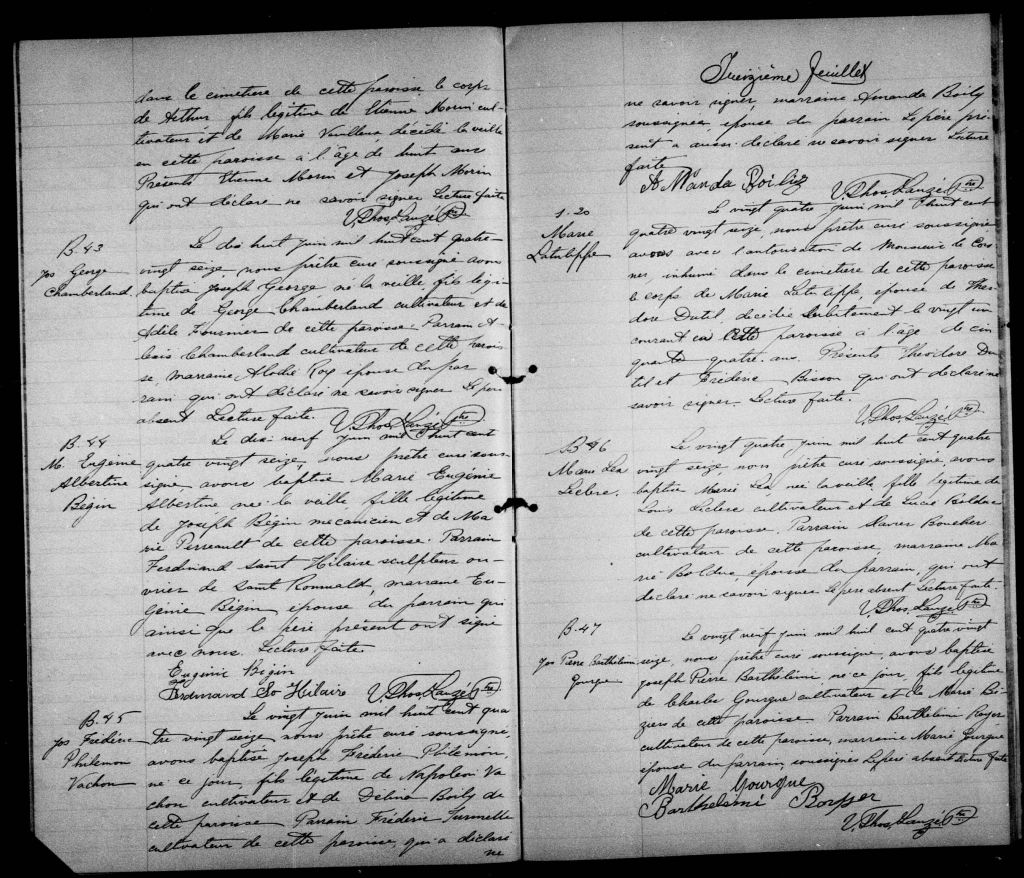 dans le cimetière de cette paroisse le corps
de Arthur fils légitime de Etienne Morin cul-
tivateur et de Marie Vanllens, décédé la veille
en cette paroisse à l'âge de huit ans
Présents Etienne Morin et Joseph Morin
qui ont déclaré ne savoir signer Lecture faite
V. Thos. Lauzé Ptre
B. 43
Jos George
Chamberland
Le dix huit juin mil huit cent quatre-
vingt seize nous prêtre curé soussigné avons
baptisé Joseph George né la veille, fils légi-
time de George Chamberland cultivateur et de
Adèle Fournier de cette paroisse. Parrain A-
lexis Chamberland cultivateur de cette parois
se, marraine Elodie Roy épouse du par
rain qui ont déclaré ne savoir signer Le père
absent Lecture faite. V. Thos. Lauzé Ptre
B. 44
M. Eugénie
Albertine
Bégin
Le dix-neuf juin mil huit cent
quatre vingt seize, nous prêtre curé sous-
signé avons baptisé Marie Eugénie
Albertine née la veille, fille légitime
de Joseph Bégin mecanicien et de Ma
rie Perreault de cette paroisse. Parrain
Ferdinand Saint Hilaire sculpteur ou-
vrier de Saint Romuald, marraine Eu-
génie Bégin épouse du parrain qui
ainsi que le père présent ont signé
avec nous. Lecture faite.
Eugénie Bégin
Ferdinand St Hilaire V. Thos. Lauzé Ptre
B. 45
Jos Fréderic
Philemon
Vachon
Le vingt juin mil huit cent qua
tre vingt seize nous prêtre curé soussigné,
avons baptisé Joseph Fréderic Philemon,
né ce jour, fils légitime de Napoléon Va
chon cultivateur et de Delina Boily de
cette paroisse Parrain Fréderic Turmelle
cultivateur de cette paroisse, qui a déclaré
ne
Treizième feuillet
ne savoir signer, marraine Amanda Boily
soussignée, épouse du parrain Le père pré
sent a aussi déclaré ne savoir signer Lecture
faite
AManda Boily
V. Thos. Lauzé Ptre
S. 20
Marie
Latulippe
Le vingt quatre juin mil huit cent
quatre vingt seize, nous prêtre curé soussigné
avons avec l'autorisation de Monsieur le Coro
ner, inhumé dans le cimetière de cette paroisse
le corps de Marie Latulippe, épouse de Théo
dore Dutil décédée subitement le vingt un
courant en cette paroisse à l'âge de cin
quante quatre ans. Présents Théodore Du
til et Fréderic Bisson qui ont déclaré ne
savoir signer Lecture faite.
V. Thos. Lauzé Ptre
B. 46
Marie Léa
Leclerc.
Le vingt quatre juin mil huit cent quatre
vingt seize, nous prêtre curé soussigné, avons
baptisé Marie Léa, née la veille, fille légitime de
Louis Leclerc cultivateur et de Lucie Bolduc
de cette paroisse. Parrain Xavier Boucher
cultivateur de cette paroisse, marraine Ma
rie Bolduc, épouse du parrain, qui ont
déclaré ne savoir signer Le père absent Lecture faite.
V. Thos. Lauzé Ptre
B. 47
Jos Pierre Barthelemi
Gourgue
Le vingt neuf juin mil huit cent quatre vingt
seize, nous prêtre curé soussigné, avons baptisé
Joseph Pierre Barthelemi, né ce jour, fils légitime
de Charles Gourgue cultivateur et de Marie Bi
ziers de cette paroisse Parrain Barthelemi Royer
cultivateur de cette paroisse, marraine Marie Gourgue
épouse du parrain, soussignés Le père absent Lecture faite
Marie Gourgue
Barthelemi Royer
V. Thos. Lauzé Ptre